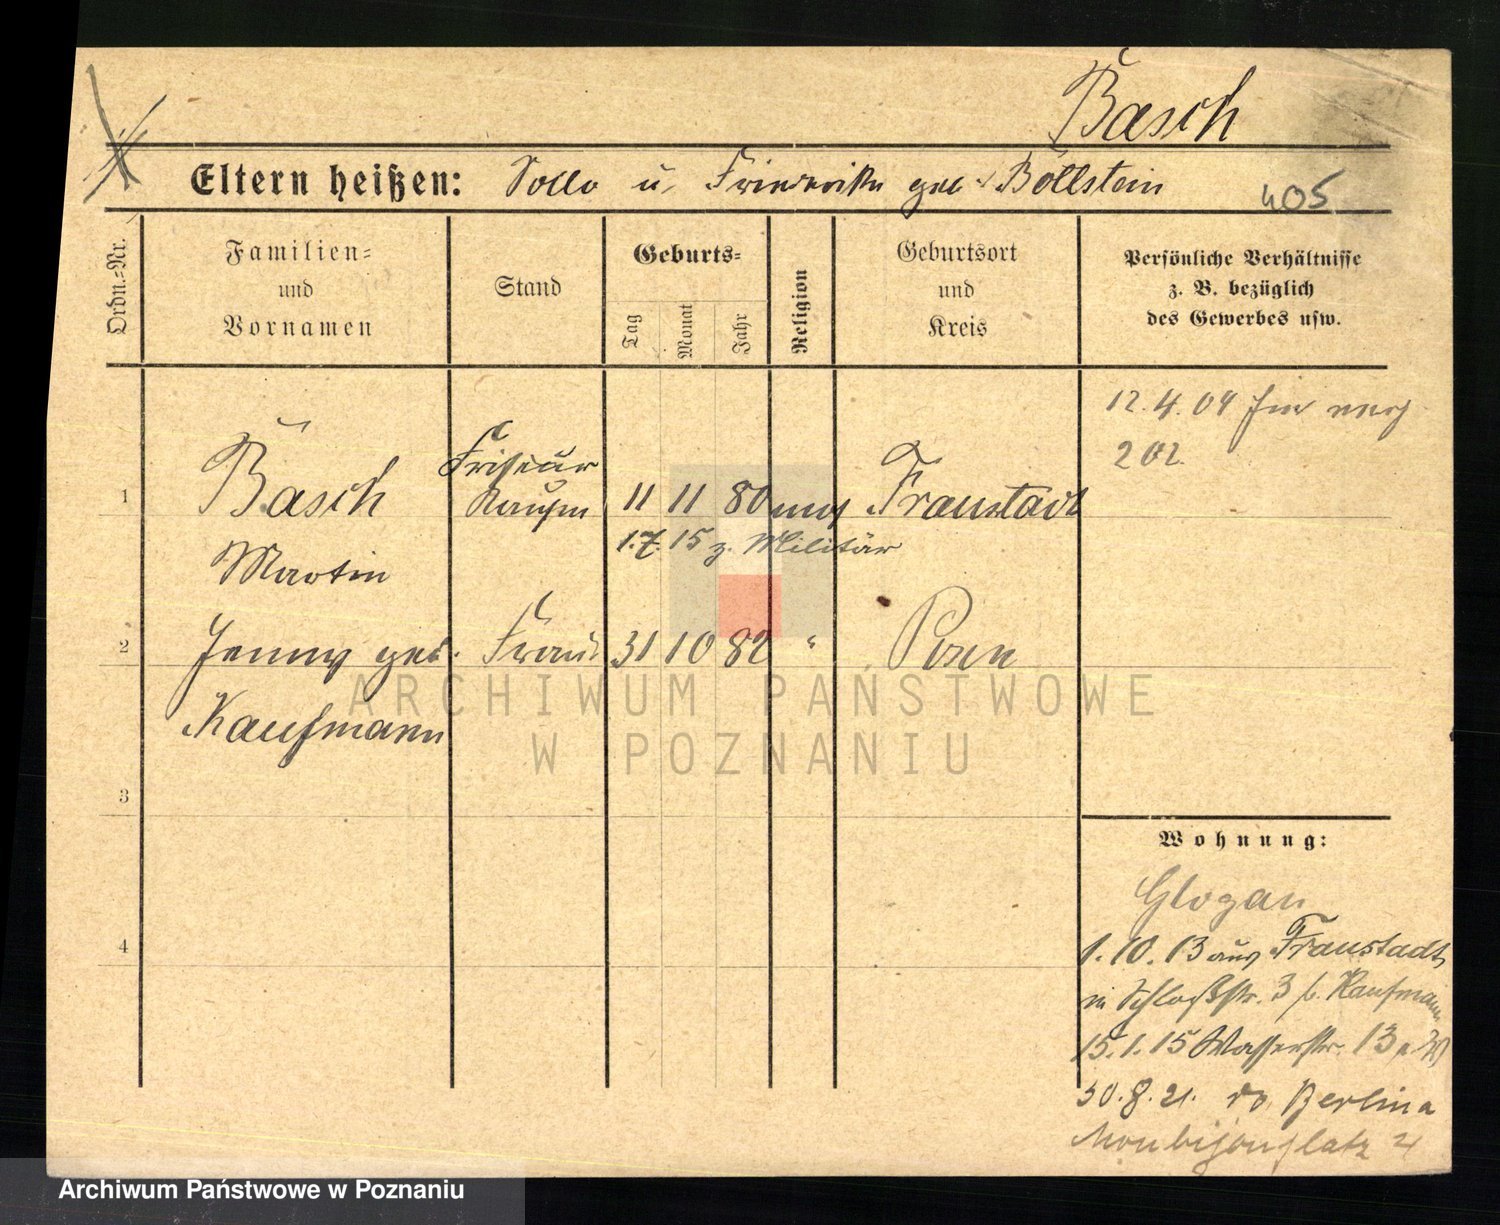 Basch
Eltern heißen: Sally u. Friederike geb. Böllstein
405
Ordn.=Nr.
Familien=
und
Vornamen
Stand
Geburts=
Tag
Monat
Jahr
Religion
Geburtsort
und
Kreis
Persönliche Verhältnisse
z. B. bezüglich
des Gewerbes usw.
12.4.09
202.
1 Basch Friseur Kaufm 11 11 80 mos Fraustadt
1.7.15 z. Militär
Martin
2 Jenny geb. Frau 31 10 82 " Posen
Kaufmann
3
4
Wohnung:
Glogau
1.10.13 aus Fraustadt
in Schloßstr. 3 b. Kaufmann
15.1.15 Wasserstr. 13
30.8.21. Berlin
Monbijouplatz 4
ARCHIWUM PAŃSTWOWE
W POZNANIU
Archiwum Państwowe w Poznaniu